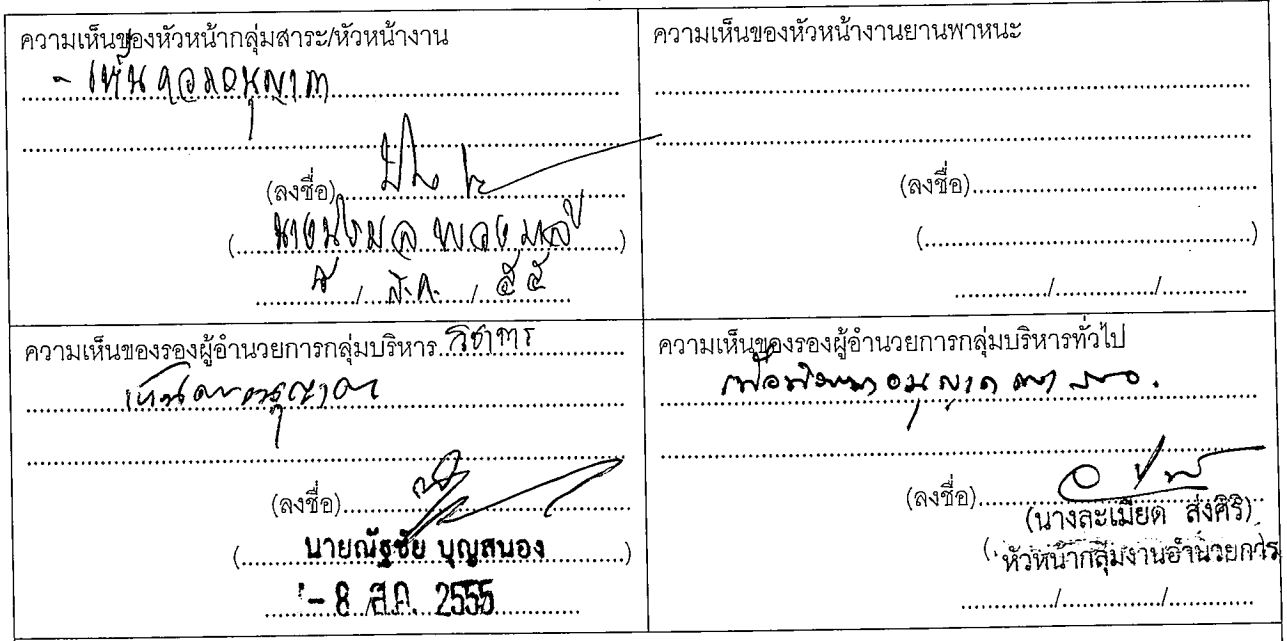 ความเห็นของหัวหน้ากลุ่มสาระ/หัวหน้างาน
- เห็นควรอนุญาต
(ลงชื่อ)
(นาง)
๘ / ส.ค. / ๕๕
ความเห็นของหัวหน้างานยานพาหนะ
(ลงชื่อ)
(..........)
........../........../..........
ความเห็นของรองผู้อำนวยการกลุ่มบริหาร วิชาการ
เห็นควรอนุญาต
(ลงชื่อ)
(นายณัฐชัย บุญสนอง)
- 8 ส.ค. 2555
ความเห็นของรองผู้อำนวยการกลุ่มบริหารทั่วไป
เพื่อพิจารณาอนุญาต
(ลงชื่อ)
(นางละเมียด ส่งศิริ)
(หัวหน้ากลุ่มงานอำนวยการ
........../........../..........